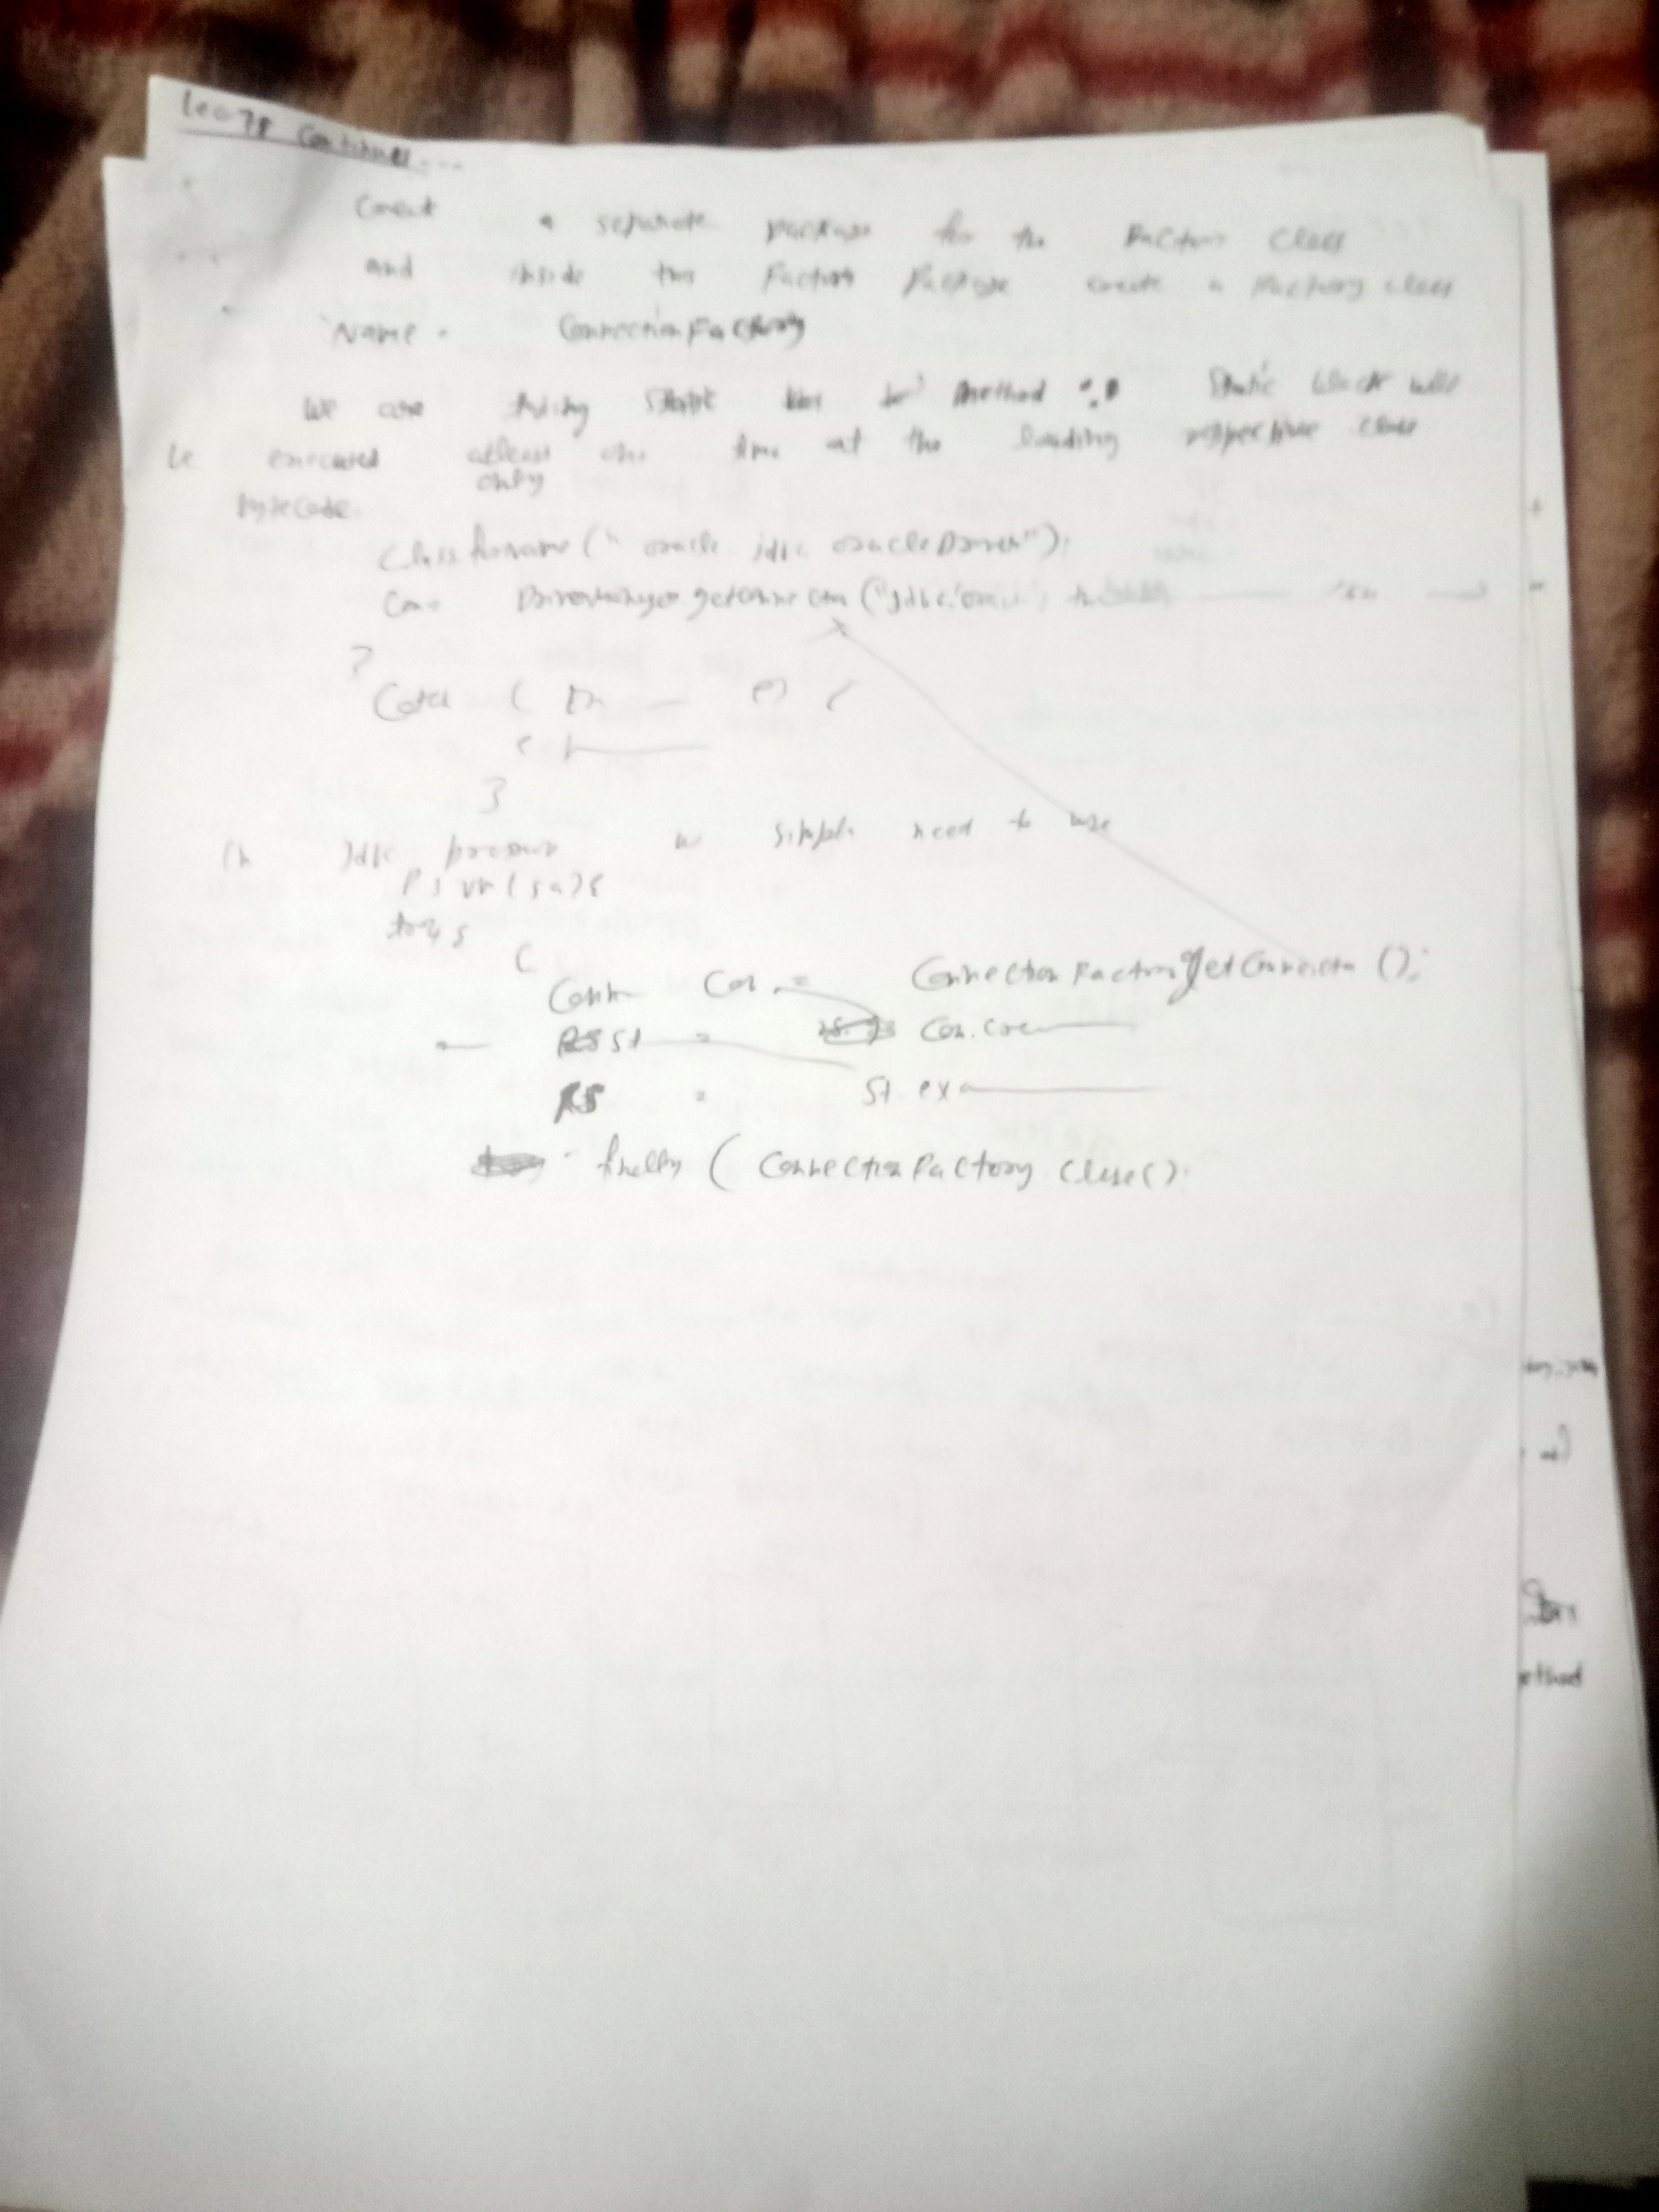 Lec-78 Continues ...
Create a separate package for the Factory Class
and inside this Factory Package create a Factory class
Name - ConnectionFactory
We are taking static method ∵ Static block will
be executed atleast one time at the loading respective class
only
bytecode.
Class forname (" oracle jdbc oracleDriver");
Con = DriverManager getConnection ("jdbc:oracle
}
Catch ( Ex — e) {
e
}
In Jdbc program we simple need to use
P S vm (sa) {
try {
Conn Con = ConnectionFactory getConnection ();
St = Con.cre
RS = St. ex
finally ( ConnectionFactory Close();
Store
ethod